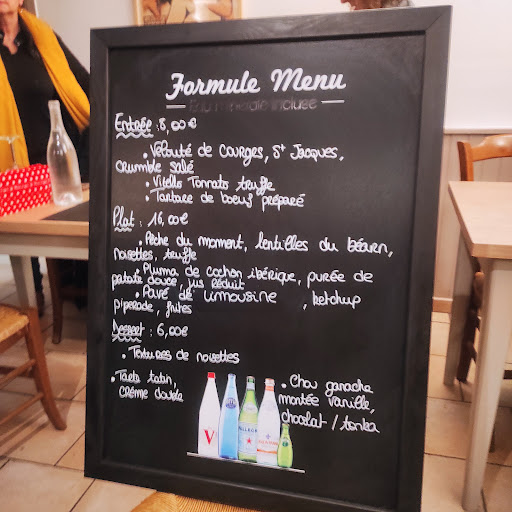 Formule Menu
Eau minérale incluse
Entrée : 8,00€
• Velouté de courges, St Jacques,
crumble salé
• Vitello Tonnato truffe
• Tartare de boeuf préparé
Plat : 16,00€
• Pêche du moment, lentilles du béarn,
noisettes, truffe
• Pluma de cochon ibérique, purée de
patate douce, jus réduit
• Pavé de Limousine , ketchup
piperade, frites
Dessert : 6,00€
• Textures de noisettes
• Tarte tatin,
crème double
• Chou ganache
montée vanille,
chocolat / tonka
V
PELLEGRINO